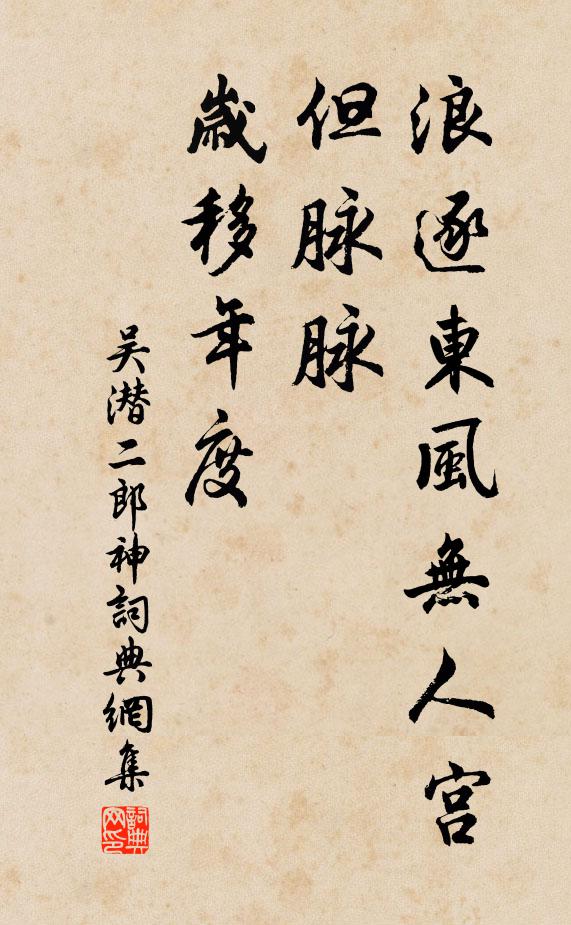 浪逐東風無人宮
但脉脉
歲移年度
吴潛二郎神詞典網集
詞典网印